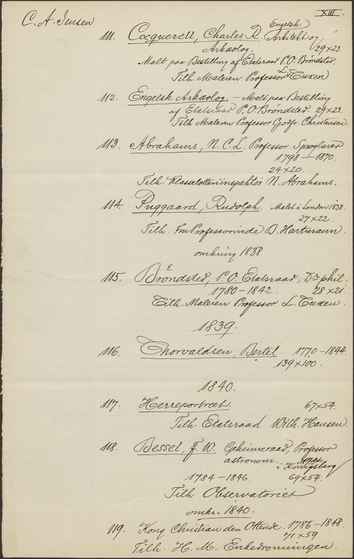 C. A. Jensen
XIII.
111. Cocquerell, Charles R. Engelsk Arkitekt og
Arkæolog. 29 x 23
Malt paa Bestilling af Etatsraad P.O. Brøndsted.
Tilh. Maleren Professor L. Tuxen
112. Engelsk Arkæolog - Malt paa Bestilling
af Etatsraad P.O. Brøndsted 29 x 23
Tilh. Maleren Professor Godfr. Christensen
113. Abrahams, N. C. L. Professor
1798 - 1870.
24 x 20
Tilh. Klasselotteriinspektør N. Abrahams.
114. Puggaard, Rudolph. Malet i London 1838.
27 x 22
Tilh. Fru Professorinde B. Hartmann
omkring 1838
115. Brøndsted, P.O. Etatsraad, Dr phil.
1780 - 1842. 28 x 21
Tilh. Maleren Professor L. Tuxen.
1839.
116. Thorvaldsen, Bertel 1770 - 1844
139 x 100.
1840.
117. Herreportræt 67 x 54.
Tilh. Etatsraad Vilh. Hansen.
118. Bessel, F. W. Geheimeraad, Professor
astronom.
i Königsberg
1784 - 1846 69 x 54.
Tilh. Observatoriet
omkr. 1840.
119. Kong Christian den Ottende. 1786 - 1848
71 x 59
Tilh. H. M. Enkedronningen